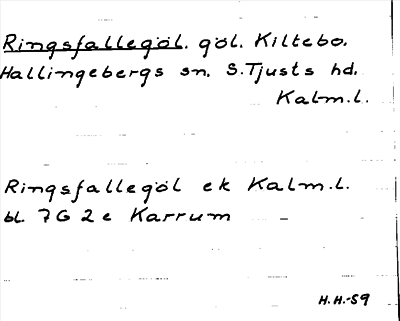 Ringsfallegöl. göl. Kiltebo.
Hallingebergs sn. S.Tjusts hd.
Kalm.l.
Ringsfallegöl ek Kalm.l.
bl. 7G 2e Karrum
H.H.-59